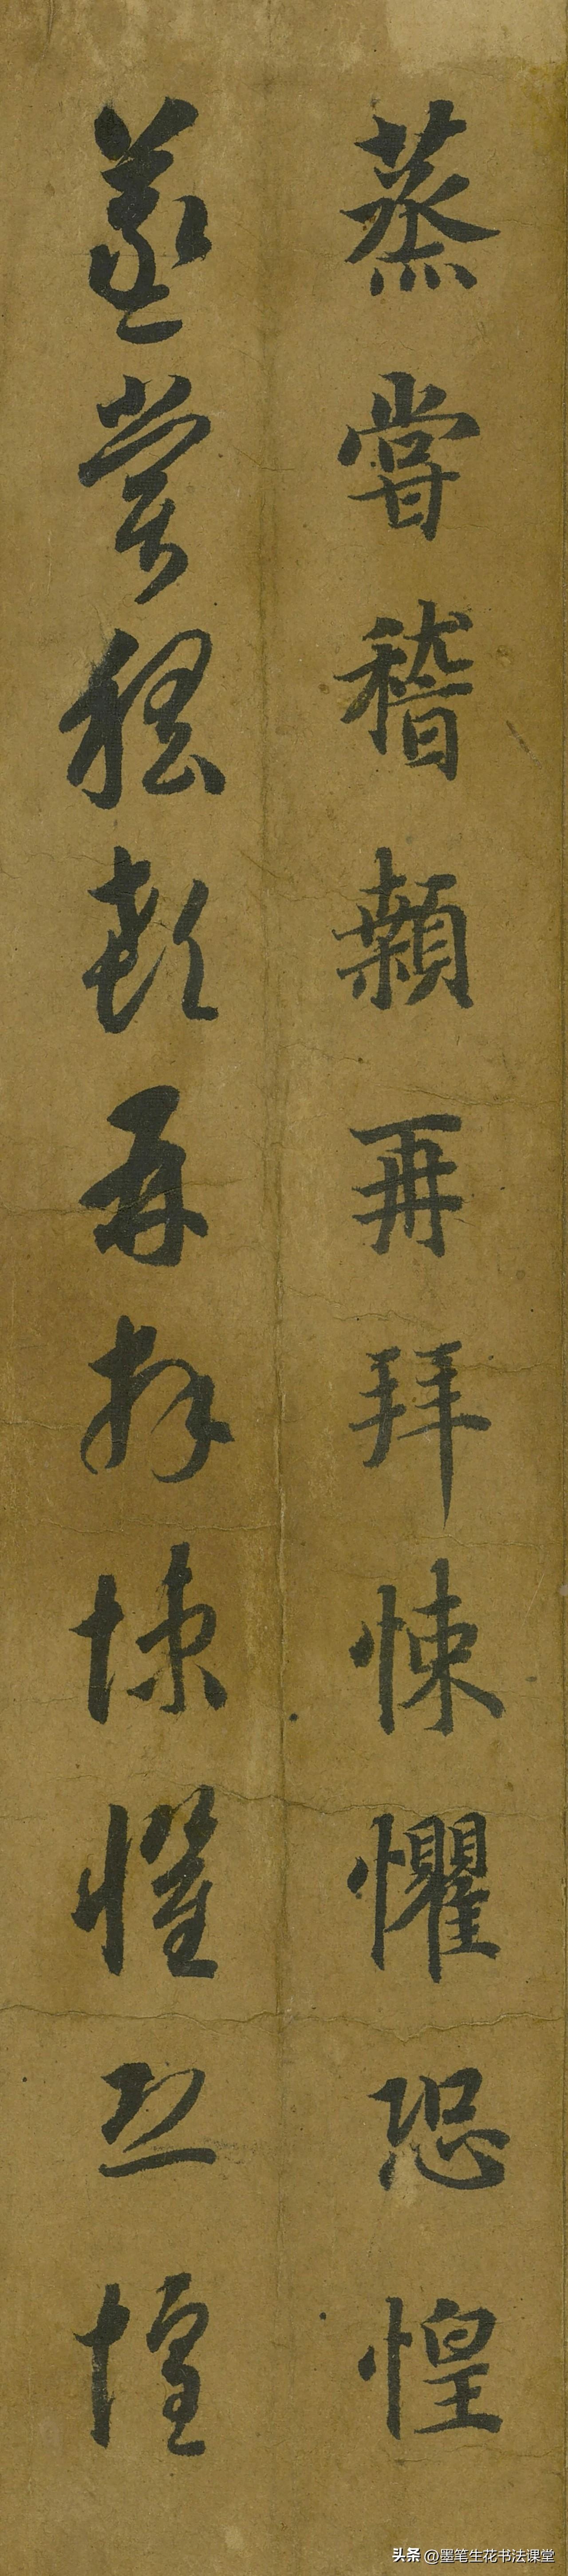 蒸嘗稽顙再拜悚懼恐惶
蒸嘗稽顙再拜悚懼恐惶
头条 @墨笔生花书法课堂